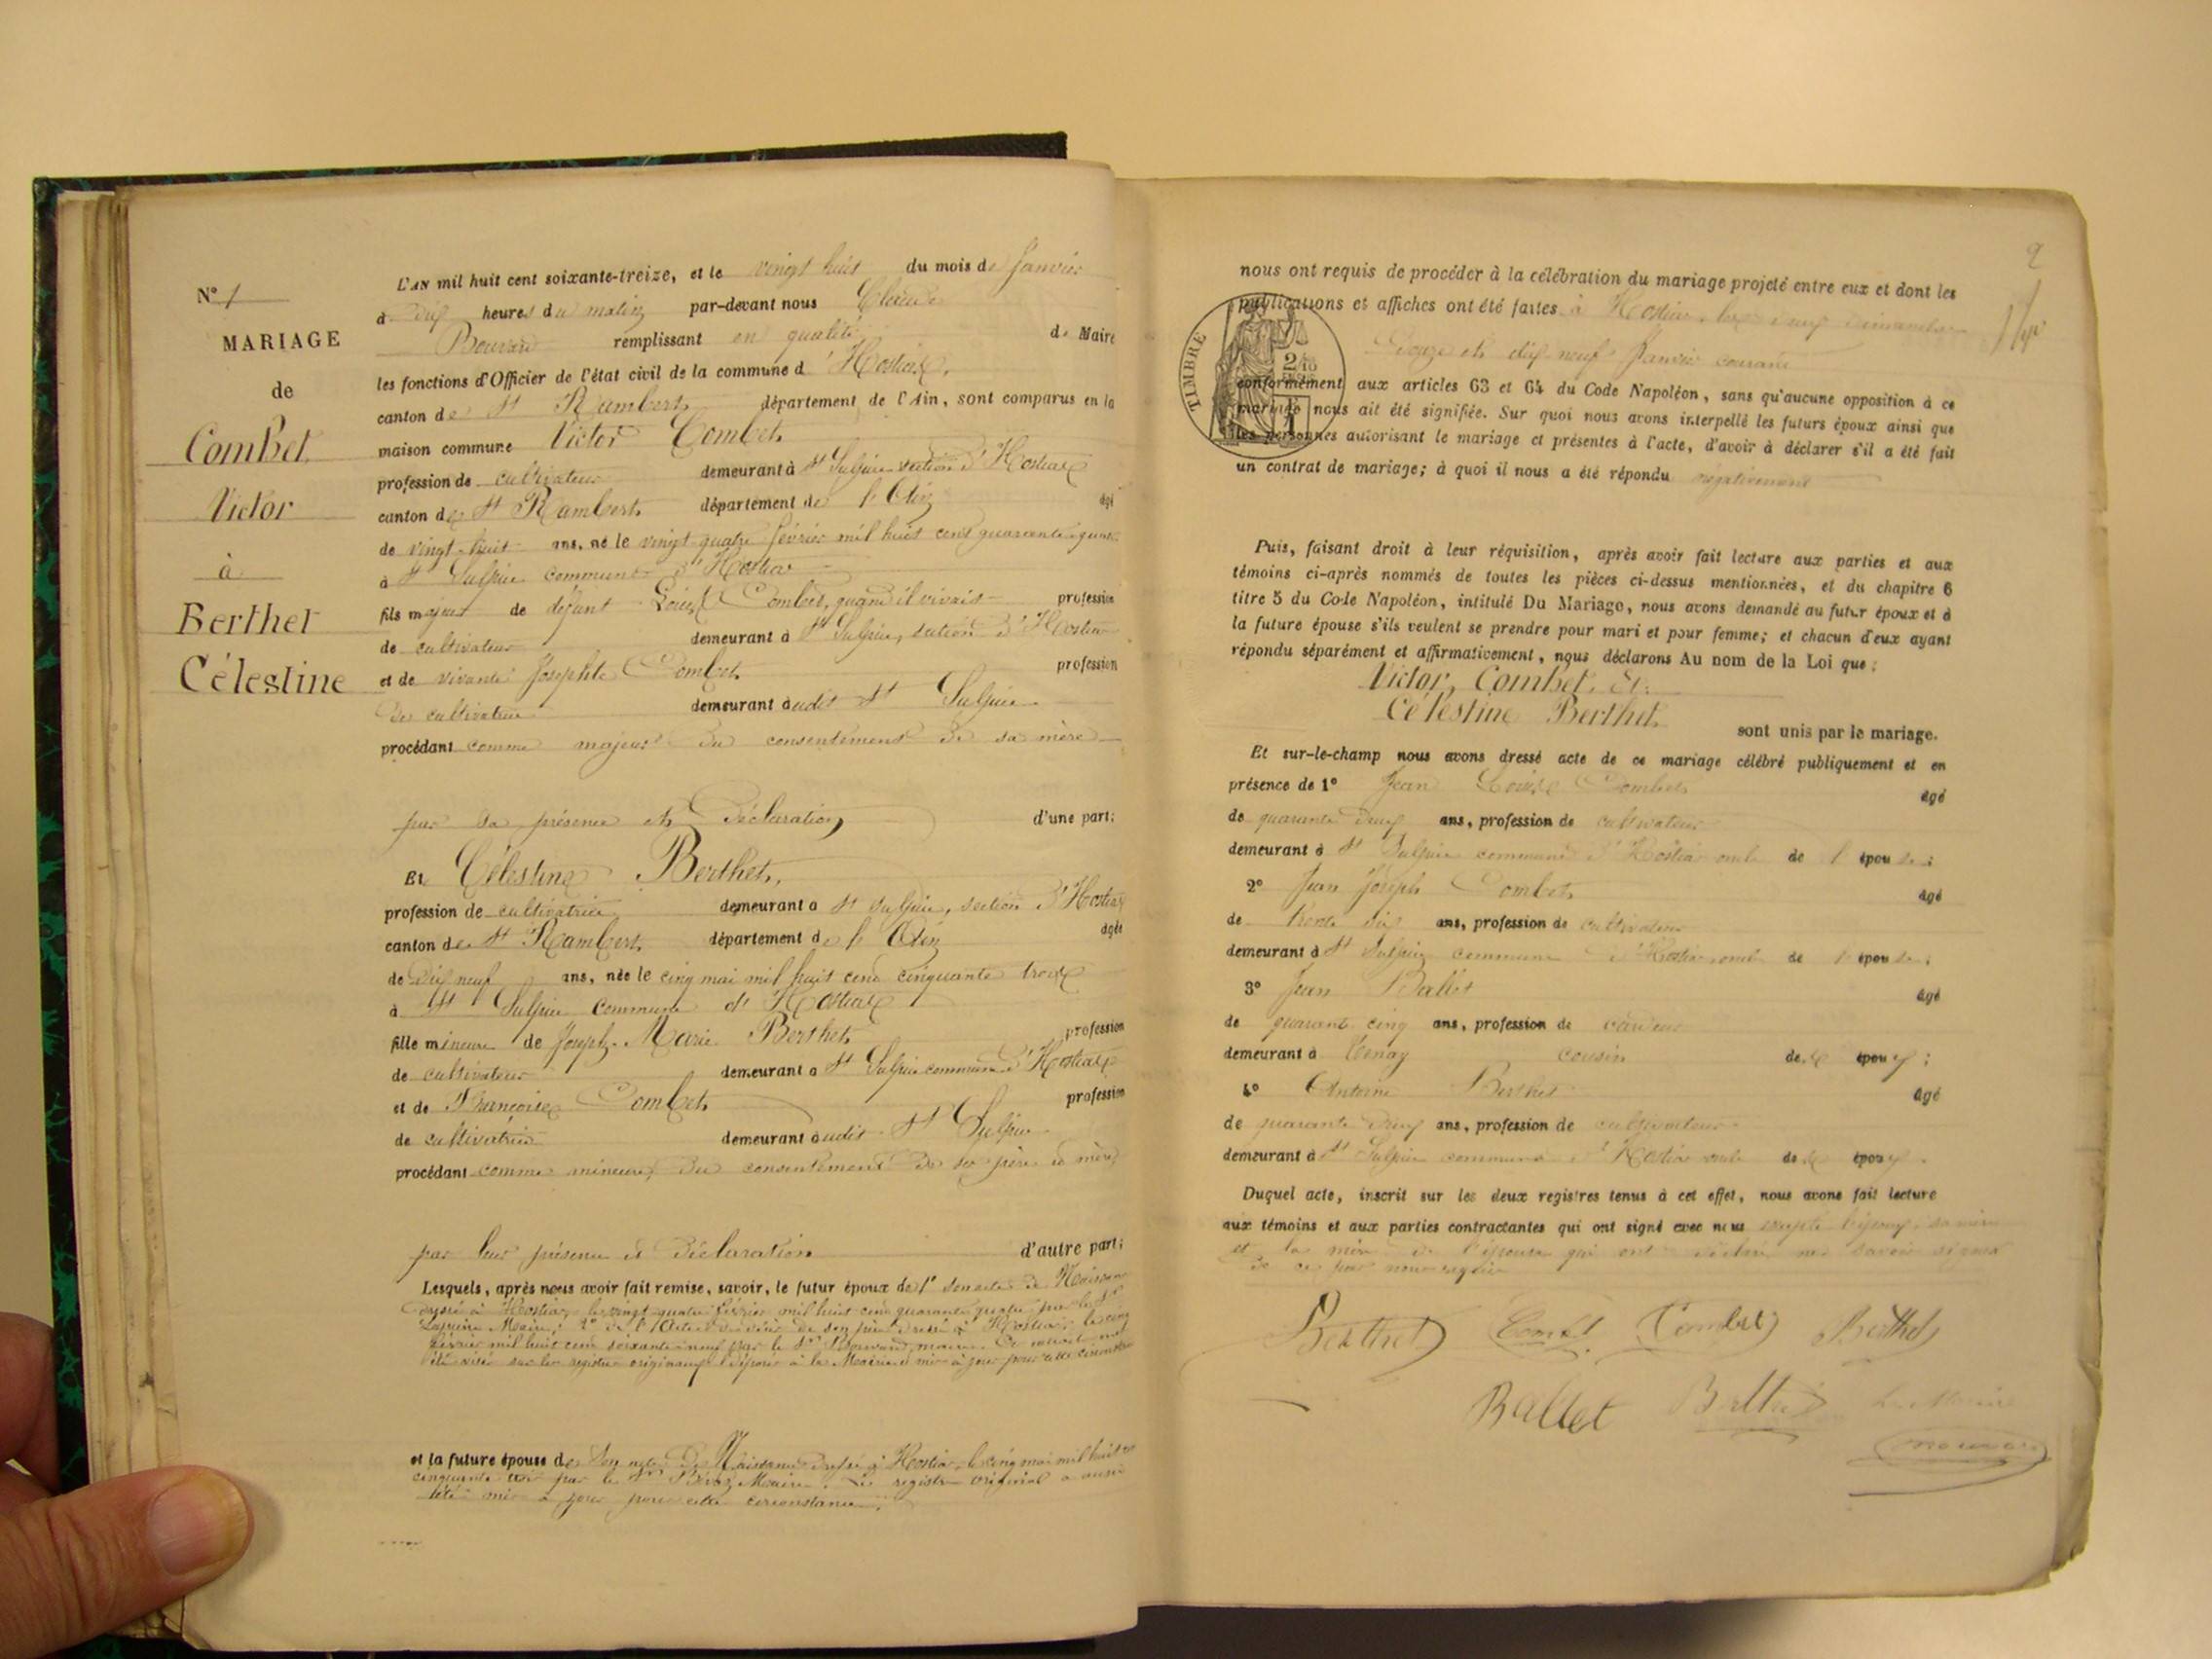 N° 1
MARIAGE
de
Combet
Victor
à
Berthet
Célestine
L'AN mil huit cent soixante-treize, et le vingt huit du mois de Janvier
à dix heures du matin par-devant nous Claude
Bouvard remplissant en qualité de Maire
les fonctions d'Officier de l'état civil de la commune d'Hostiax,
canton de St Rambert, département de l'Ain, sont comparus en la
maison commune Victor Combet,
profession de cultivateur demeurant à St Sulpice section d'Hostiax
canton de St Rambert, département de l'Ain âgé
de vingt-huit ans, né le vingt quatre février mil huit cent quarante quatre
à St Sulpice commune d'Hostiax
fils majeur de défunt Louis Combet, quand il vivait profession
de cultivateur demeurant à St Sulpice, section d'Hostiax
et de vivante Josephte Combet, profession
de cultivatrice demeurant audit St Sulpice
procédant comme majeur du consentement de sa mère
par sa présence et déclaration d'une part;
Et Célestine Berthet,
profession de cultivatrice demeurant à St Sulpice, section d'Hostiax
canton de St Rambert, département de l'Ain âgée
de dix neuf ans, née le cinq mai mil huit cent cinquante trois
à St Sulpice commune d'Hostiax
fille mineure de Joseph-Marie Berthet, profession
de cultivateur demeurant à St Sulpice commune d'Hostiax
et de Françoise Combet, profession
de cultivatrice demeurant audit St Sulpice
procédant comme mineure, du consentement de ses père et mère
par leur présence et déclaration d'autre part;
Lesquels, après nous avoir fait remise, savoir, le futur époux de 1° son acte de Naissance
dressé à Hostiax, le vingt quatre février mil huit cent quarante quatre par le Sr
Maire; 2° de l'Acte de décès de son père dressé à Hostiax, le cinq
février mil huit cent soixante neuf par le Sr Bouvard, maire.
été visé sur les registres originaux déposés à la Mairie et mis à jour pour cette circonstance
et la future épouse de son acte de Naissance dressé à Hostiax, le cinq mai mil huit cent
cinquante trois par le Sr Maire. Le registre original a aussi
été mis à jour pour cette circonstance.
2
nous ont requis de procéder à la célébration du mariage projeté entre eux et dont les
publications et affiches ont été faites à Hostiax, les deux dimanches
douze et dix neuf Janvier courant
TIMBRE
conformément aux articles 63 et 64 du Code Napoléon, sans qu'aucune opposition à ce
mariage nous ait été signifiée. Sur quoi nous avons interpellé les futurs époux ainsi que
les personnes autorisant le mariage et présentes à l'acte, d'avoir à déclarer s'il a été fait
un contrat de mariage; à quoi il nous a été répondu négativement
Puis, faisant droit à leur réquisition, après avoir fait lecture aux parties et aux
témoins ci-après nommés de toutes les pièces ci-dessus mentionnées, et du chapitre 6
titre 5 du Code Napoléon, intitulé Du Mariage, nous avons demandé au futur époux et à
la future épouse s'ils veulent se prendre pour mari et pour femme; et chacun d'eux ayant
répondu séparément et affirmativement, nous déclarons Au nom de la Loi que:
Victor, Combet, Et
Célestine Berthet,
sont unis par le mariage.
Et sur-le-champ nous avons dressé acte de ce mariage célébré publiquement et en
présence de 1° Jean Louis Combet, âgé
de quarante deux ans, profession de cultivateur
demeurant à St Sulpice commune d'Hostiax oncle de l'épouse;
2° Jean Joseph Combet, âgé
de trente six ans, profession de cultivateur
demeurant à St Sulpice commune d'Hostiax, oncle de l'épouse;
3° Jean Ballet âgé
de quarante cinq ans, profession de
demeurant à Tenay cousin de l'époux;
4° Antoine Berthet âgé
de quarante deux ans, profession de cultivateur
demeurant à St Sulpice commune d'Hostiax oncle de l'époux.
Duquel acte, inscrit sur les deux registres tenus à cet effet, nous avons fait lecture
aux témoins et aux parties contractantes qui ont signé avec nous excepté l'époux, sa mère
et la mère de l'épouse qui ont déclaré ne savoir signer
de ce par nous requis
Berthet Combet Combet Berthet
Ballet Le Maire